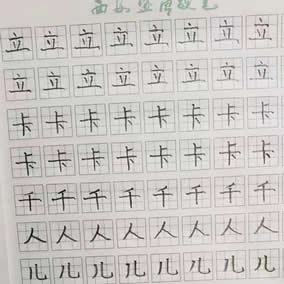 立 立 立 立 立 立 立 立
立 立 立 立 立 立 立 立
卡 卡 卡 卡 卡 卡 卡 卡
卡 卡 卡 卡 卡 卡 卡 卡
千 千 千 千 千 千 千 千
人 人 人 人 人 人 人 人
儿 儿 儿 儿 儿 儿 儿 儿